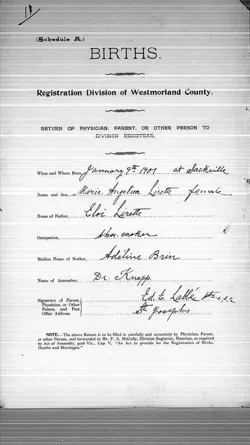 (Schedule A.)
BIRTHS.
Registration Division of Westmorland County.
RETURN OF PHYSICIAN, PARENT, OR OTHER PERSON TO
DIVISION REGISTRAR.
When and Where Born, January 9th 1901 at Sackville
Name and Sex, Marie Angelina Lirette female
Name of Father, Eloi Lirette
Occupation, Shoe-maker
Maiden Name of Mother, Adéline Brin
Name of Accoucheur, Dr. Knapp
Signature of Parent,
Physician, or Other
Person, and Post
Office Address.
Ed. E. Labbé
St. Josephs
NOTE.—The above Return is to be filled in carefully and accurately by Physician, Parent,
or other Person, and forwarded to Mr. F. A. McCully, Division Registrar, Moncton, as required
by Act of Assembly, 50th Vic., Cap. V, "An Act to provide for the Registration of Births,
Deaths and Marriages."